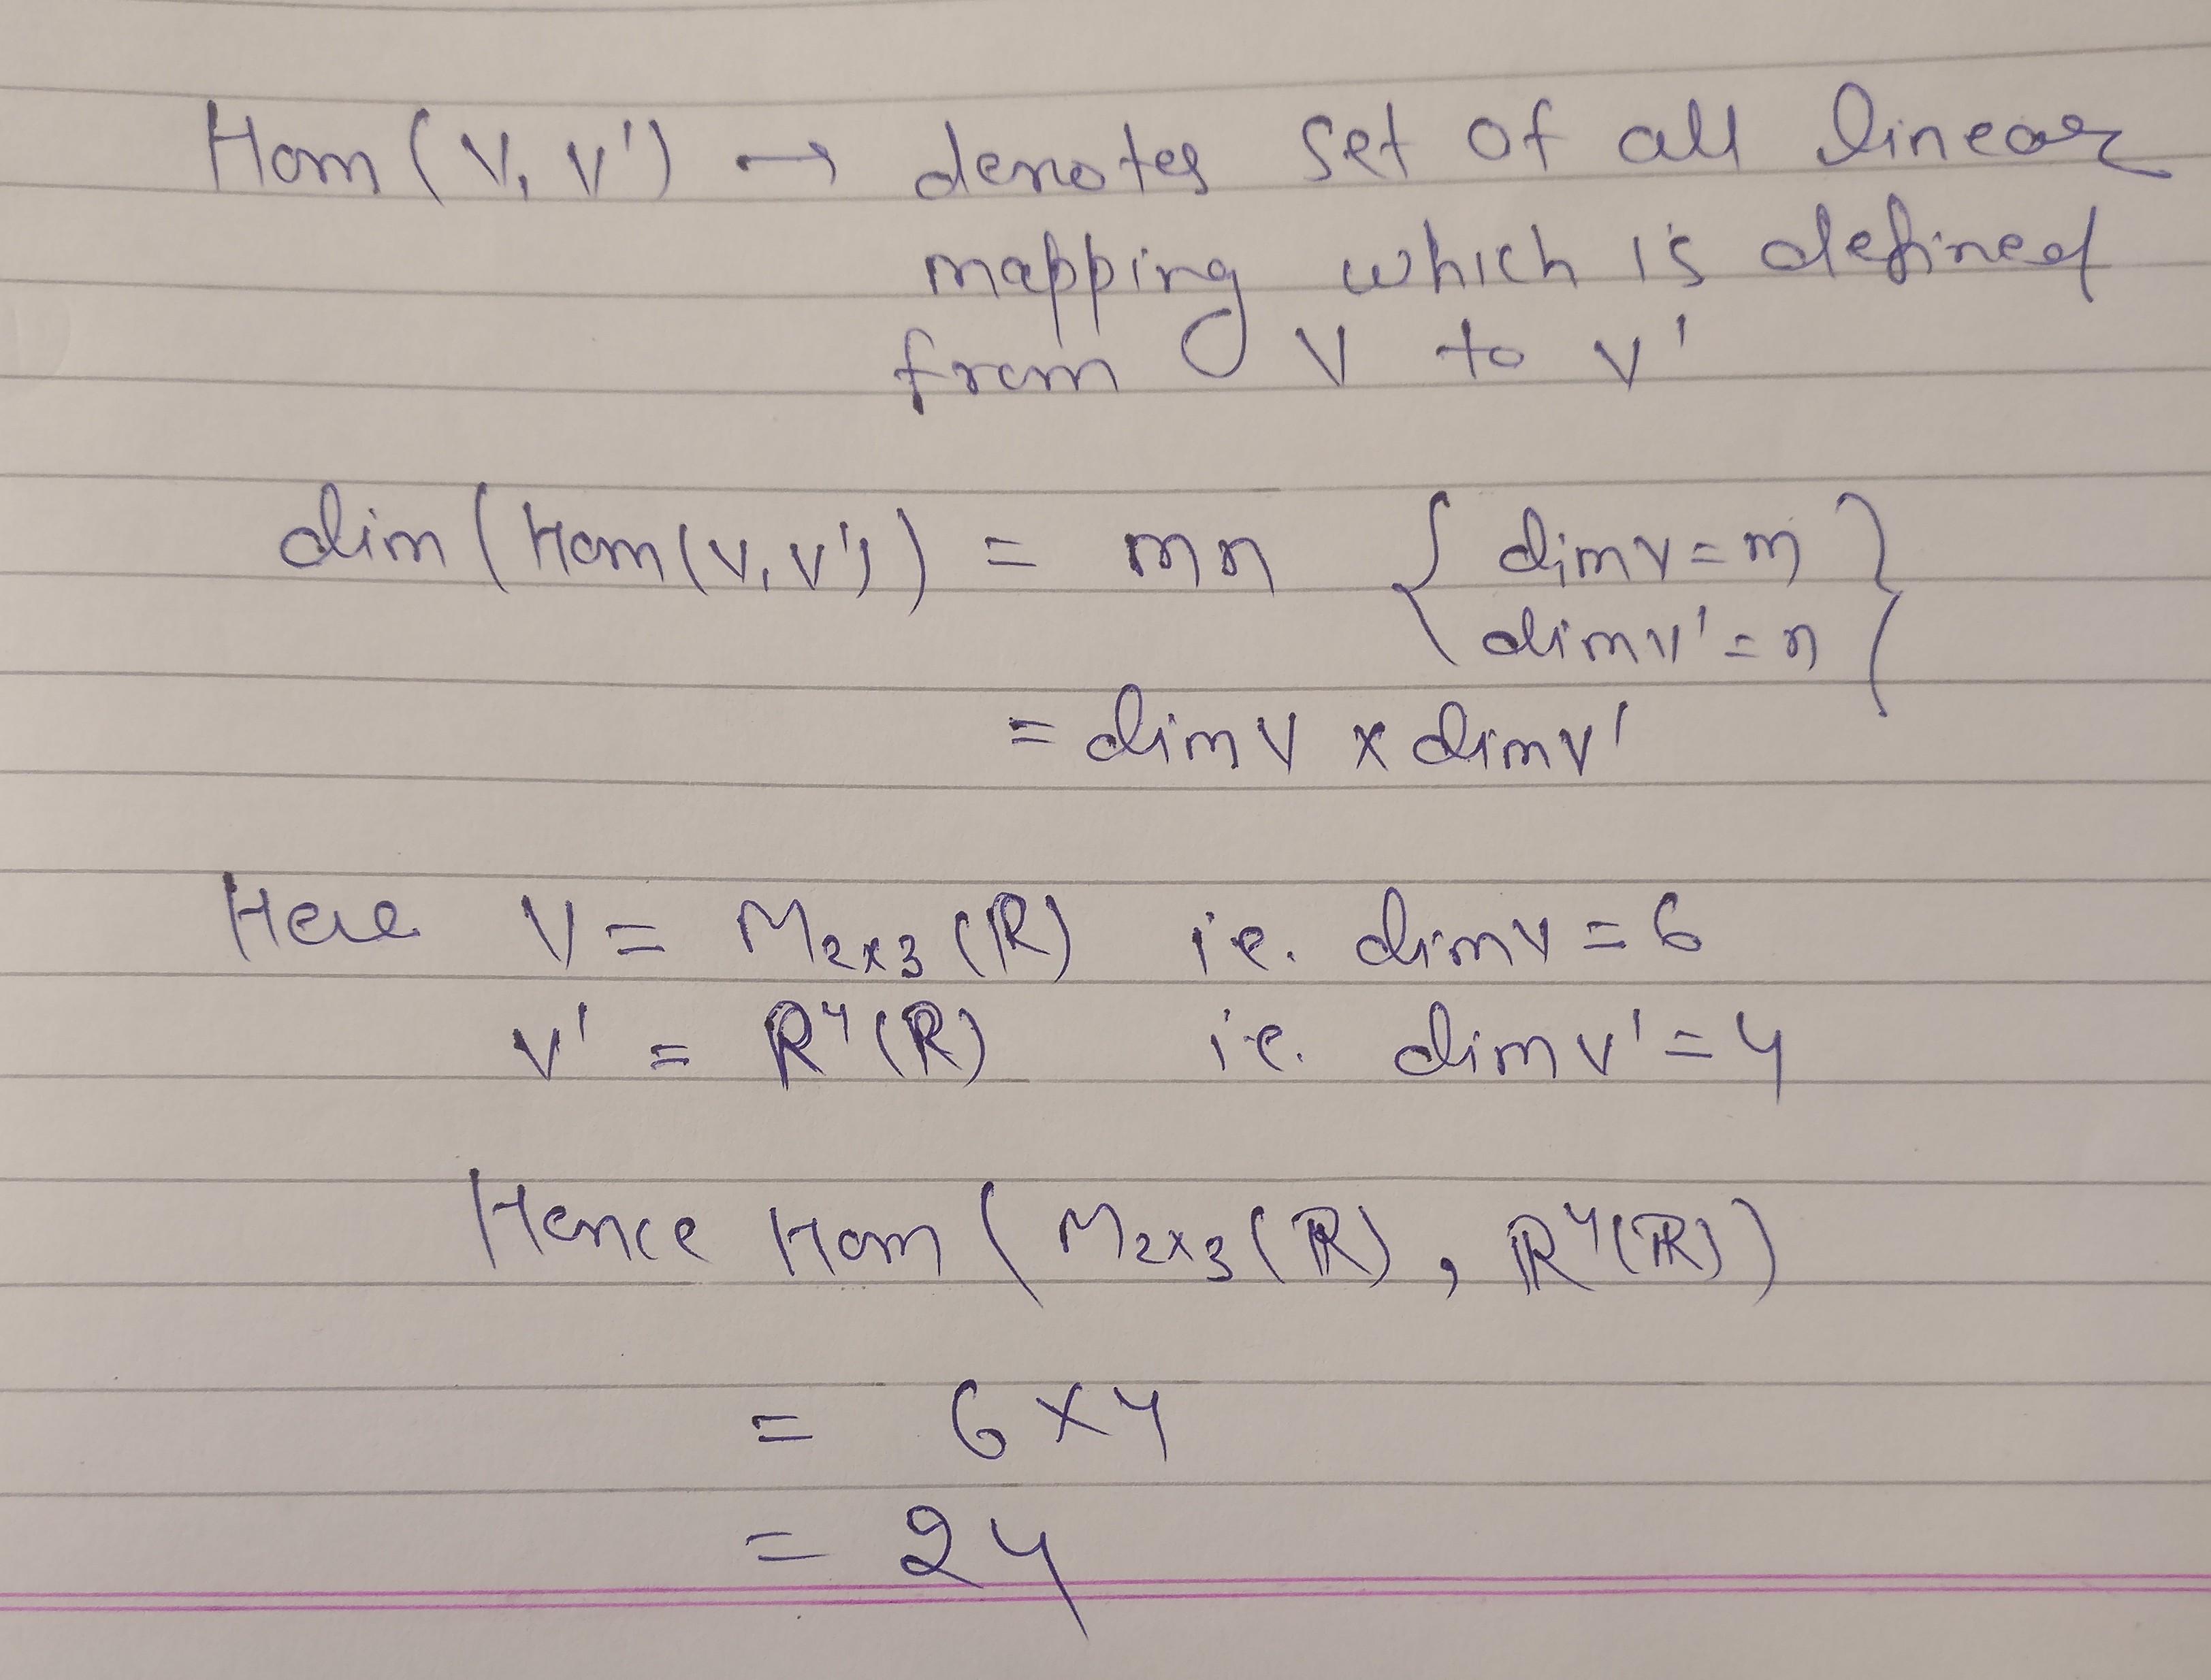 Hom (V, V') → denotes set of all linear
mapping which is defined
from V to V'
dim (Hom(V, V')) = mn { dim V = m
dim V' = n }
= dim V × dim V'
Here V = M₂ₓ₃ (ℝ) i.e. dim V = 6
V' = ℝ⁴(ℝ) i.e. dim V' = 4
Hence Hom ( M₂ₓ₃(ℝ), ℝ⁴(ℝ))
= 6 × 4
= 24